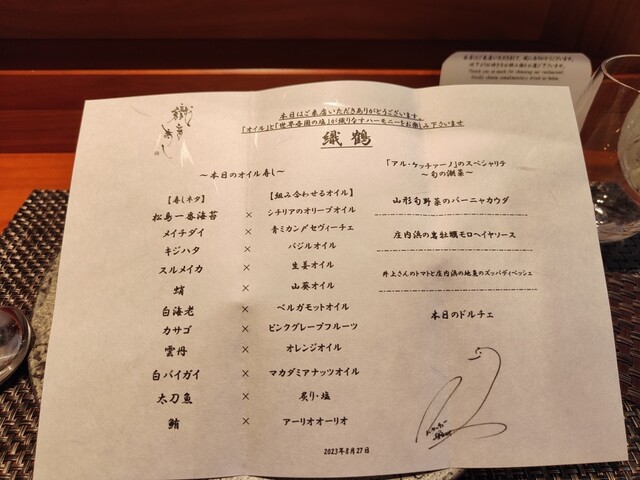 本日はご来店いただきありがとうございます。
「オイル」と「世界各国の塩」が織りなすハーモニーをお楽しみ下さいませ
織鶴
～本日のオイル寿し～
【寿しネタ】 【組み合わせるオイル】
松島一番海苔 × シチリアのオリーブオイル
メイチダイ × 青ミカン〆セヴィーチェ
キジハタ × バジルオイル
スルメイカ × 生姜オイル
蛸 × 山葵オイル
白海老 × ベルガモットオイル
カサゴ × ピンクグレープフルーツ
雲丹 × オレンジオイル
白バイガイ × マカダミアナッツオイル
太刀魚 × 炙り・塩
鮪 × アーリオオーリオ
「アル・ケッチァーノ」のスペシャリテ
～旬の潮菜～
山形旬野菜のバーニャカウダ
庄内浜の岩牡蠣モロヘイヤソース
井上さんのトマトと庄内浜の地魚のズッパディペッシェ
本日のドルチェ
2023年8月27日